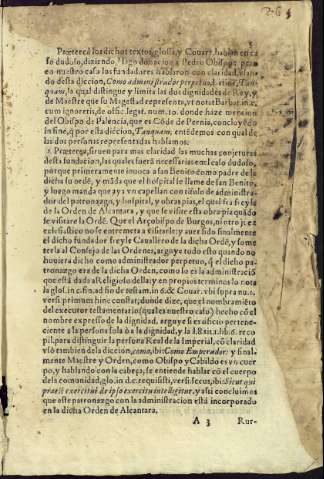 Praeterea los dichos textos, glossa, y Couarr. hablan en ca
so dudoso, diziendo Hago donacion a Pedro Obispo: pero
en nuestro caso los fundadores hablaron con claridad, vsan
do desta diccion, Como administrador perpetuo, Latine, Tan
quam, la qual distingue y limita las dos dignidades de Rey, y
de Maestre que su Magestad representa, vt notat Barbat. in c.
cum ignoretis, de offic. legat. num. 10. donde haze mencion
del Obispo de Palencia, que es Cõde de Pernia, concluyẽdo
in fine, q̃ por ella diccion, Tanquam, entẽdemos con qual de
las dos personas representadas hablamos.
Praeterea, siruen para mas claridad las muchas conjeturas
desta fundacion, las quales fuerã necessarias en el caso dudoso,
porque primeramente inuoca a san Benito como padre de la
dicha su ordẽ, y mãda que el hospital se llame de san Benito,
y luego manda que aya vn capellan con titulo de administra-
dor del patronazgo, y hospital, y obras pias, el qual sea freyle
de la Orden de Alcantara, y que se visite esta obra pia quãdo
se visitare la Ordẽ. Que el Arçobispo de Burgos, ni otro juez
eclesiastico no se entremeta a visitarle: y auer sido finalmente
el dicho fundador freyle Cauallero de la dicha Ordẽ, y some
terla al Consejo de las Ordenes, arguye todo esto quando no
huuiera dicho como administrador perpetuo, q̃ el dicho pa-
tronazgo era de la dicha Orden, como lo es la administraciõ
que està dada a Religioso della: y en propios terminos lo nota
la glos.
vers. primum hinc constat, donde dize, que el nombramiẽto
del executor testamentario (qual es nuestro caso) hecho cõ el
nombre expresso de la dignidad, arguye ser oficio pertene-
ciente a la persona sola ò a la dignidad, y la
pil. para distinguir la persona Real de la Imperial, cõ claridad
vsò tambien de la diccion, como, ibi: Como Emperador: y final
mente Maestre y Orden, como Obispo y Cabildo es vn cuer
po, y hablando con la cabeça, se entiende hablar cõ el cuerpo
de la comunidad, glo. in d. c. requisisti, vers. secus, ibi: Sicut qui
praeest exercitui de ipso exercitu intelligitur, y assi concluimos
que este patronazgo con la administracion està incorporado
en la dicha Orden de Alcantara.
A 3 Rur-